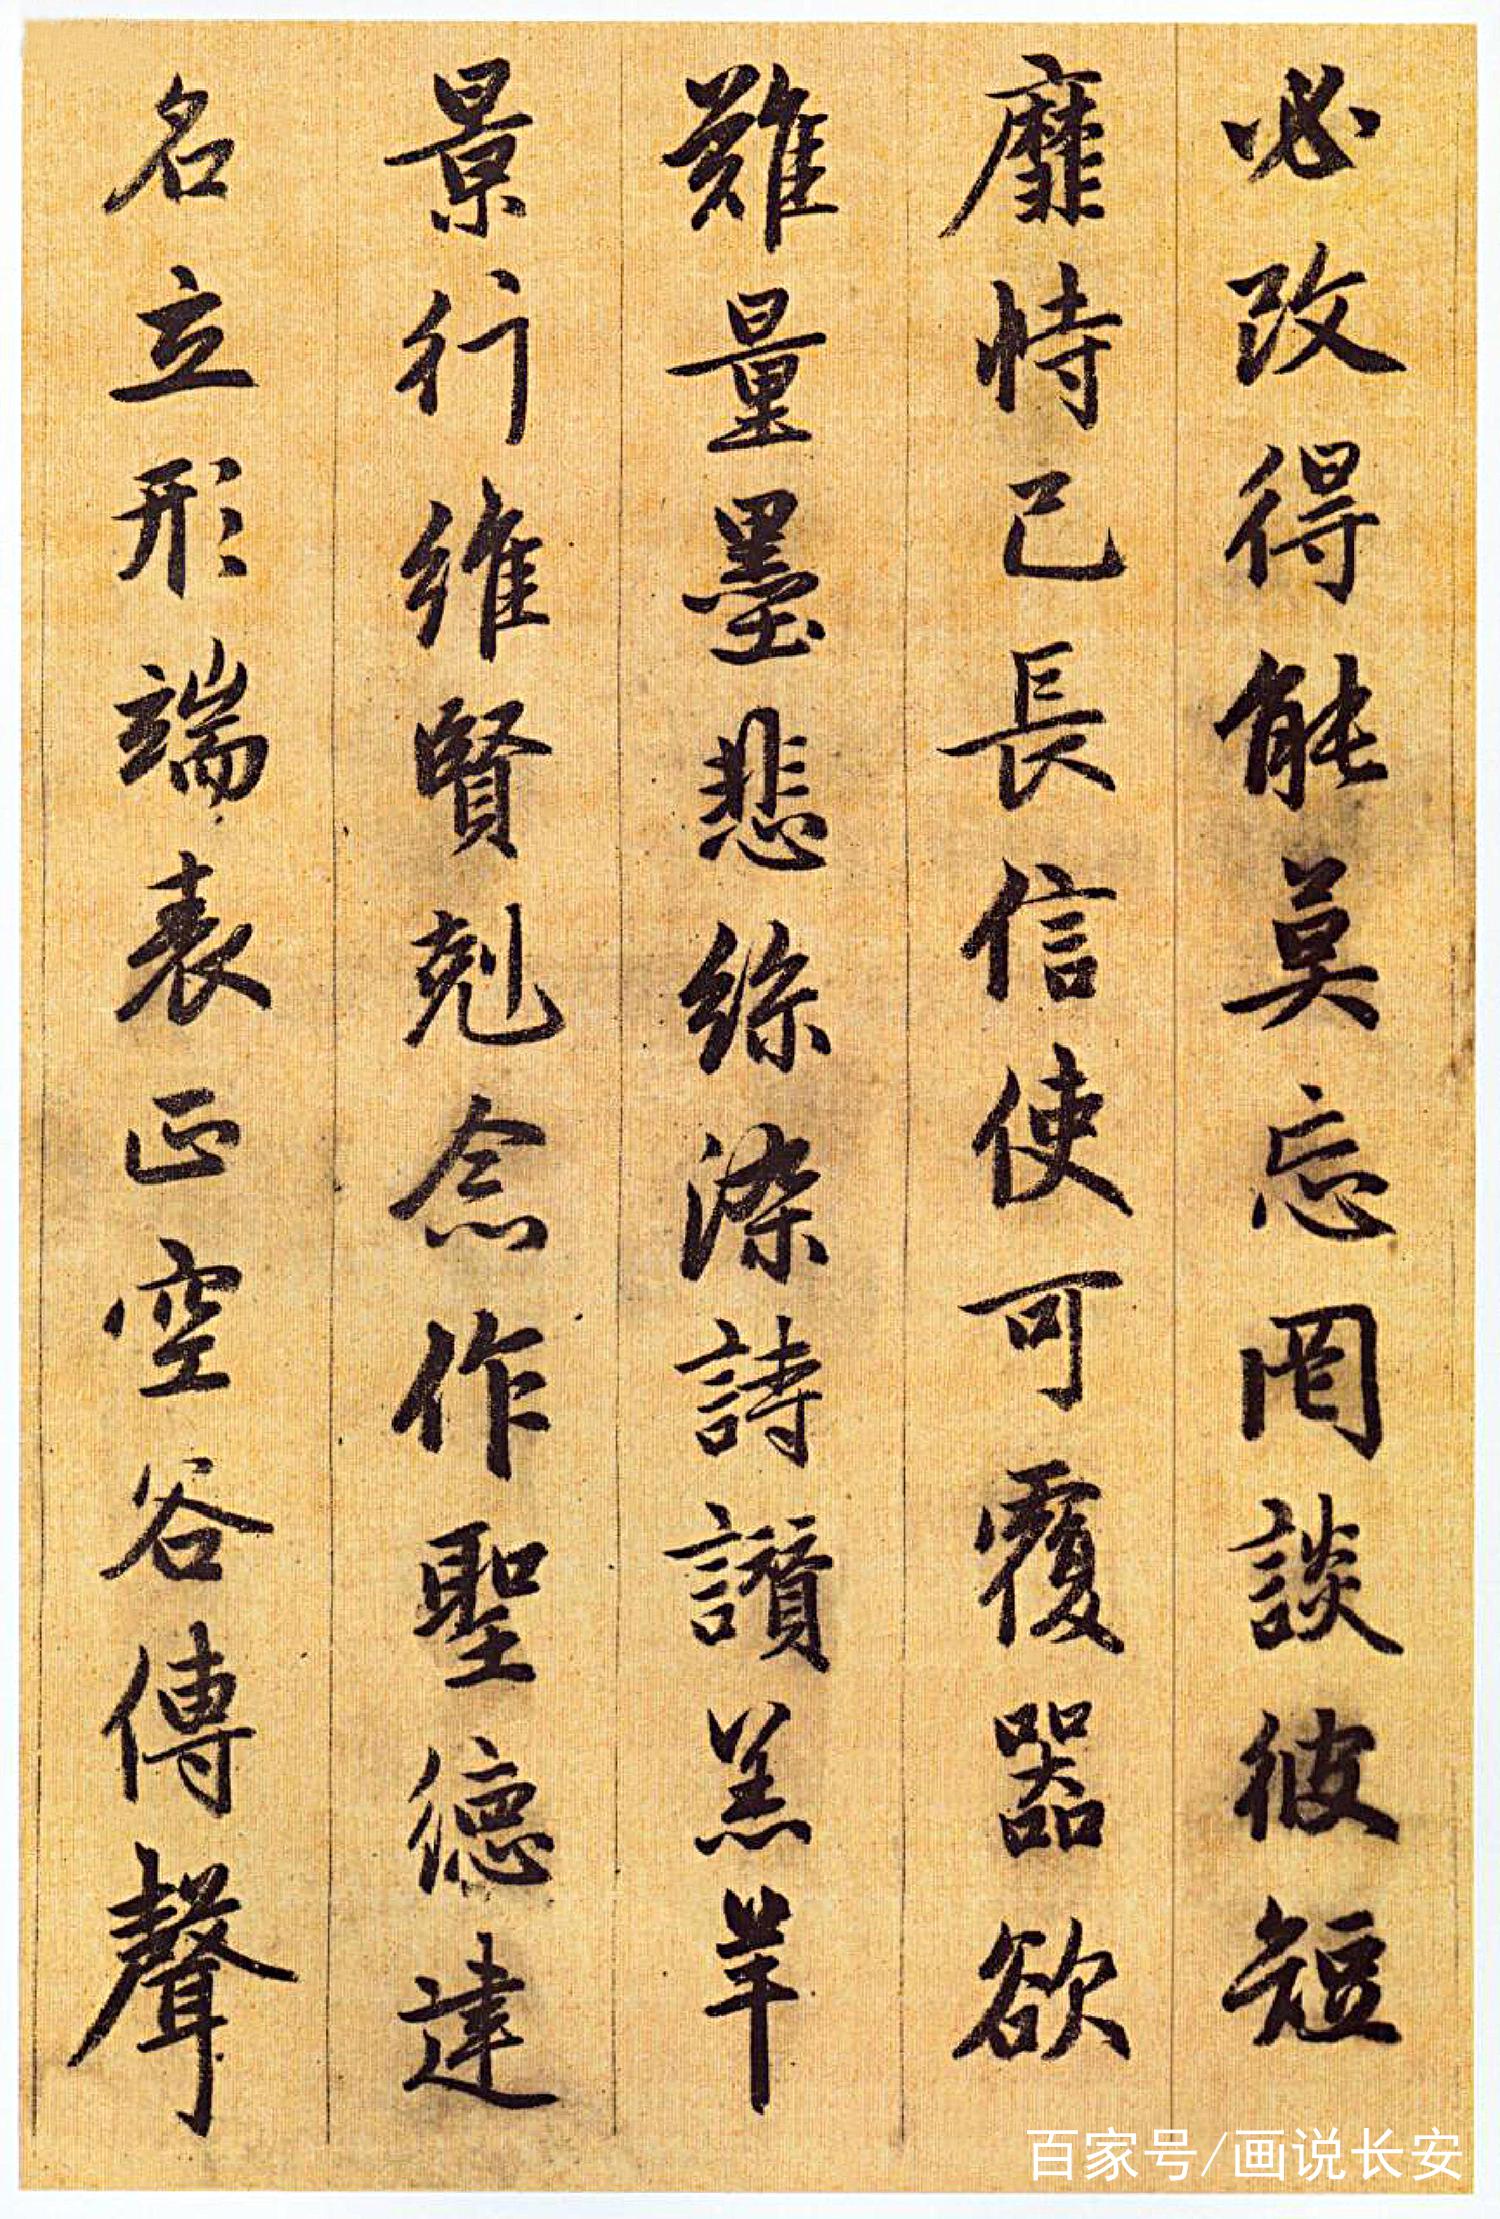 必改得能莫忘罔談彼短
靡恃己長信使可覆器欲
難量墨悲絲染詩讃羔羊
景行維賢剋念作聖德建
名立形端表正空谷傳聲
百家号/画说长安